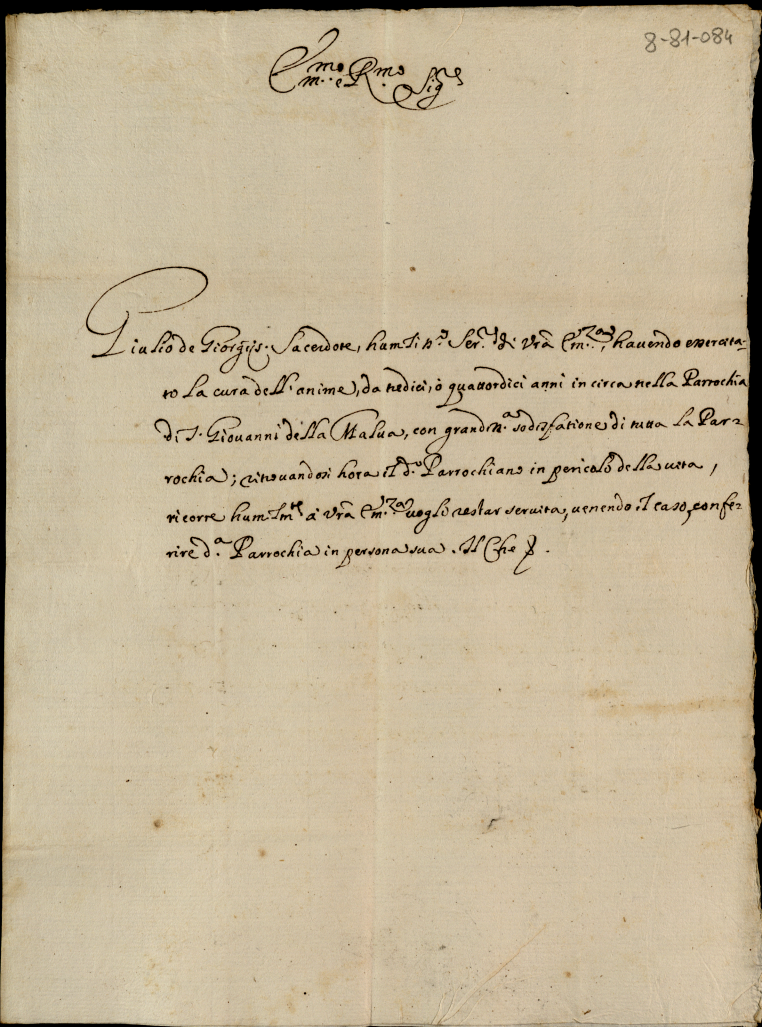 8-81-084
Em.mo e R.mo Sig.re
Giulio de Giorgijs Sacerdote, humiliss.o Ser.re di Vrã Em.za, havendo exercita-
to la cura dell'anime, da tredici, ò quattordici anni in circa nella Parrochia
di S. Giovanni della Malva, con grandiss.a sodisfatione di tutta la Par-
rochia; ritrovandosi hora il d.o Parrochiano in pericolo della vita,
ricorre humilm.te à Vrã Em.za voglii restar servita, venendo il caso, confe-
rire d.a Parrochia in persona sua. Il Che